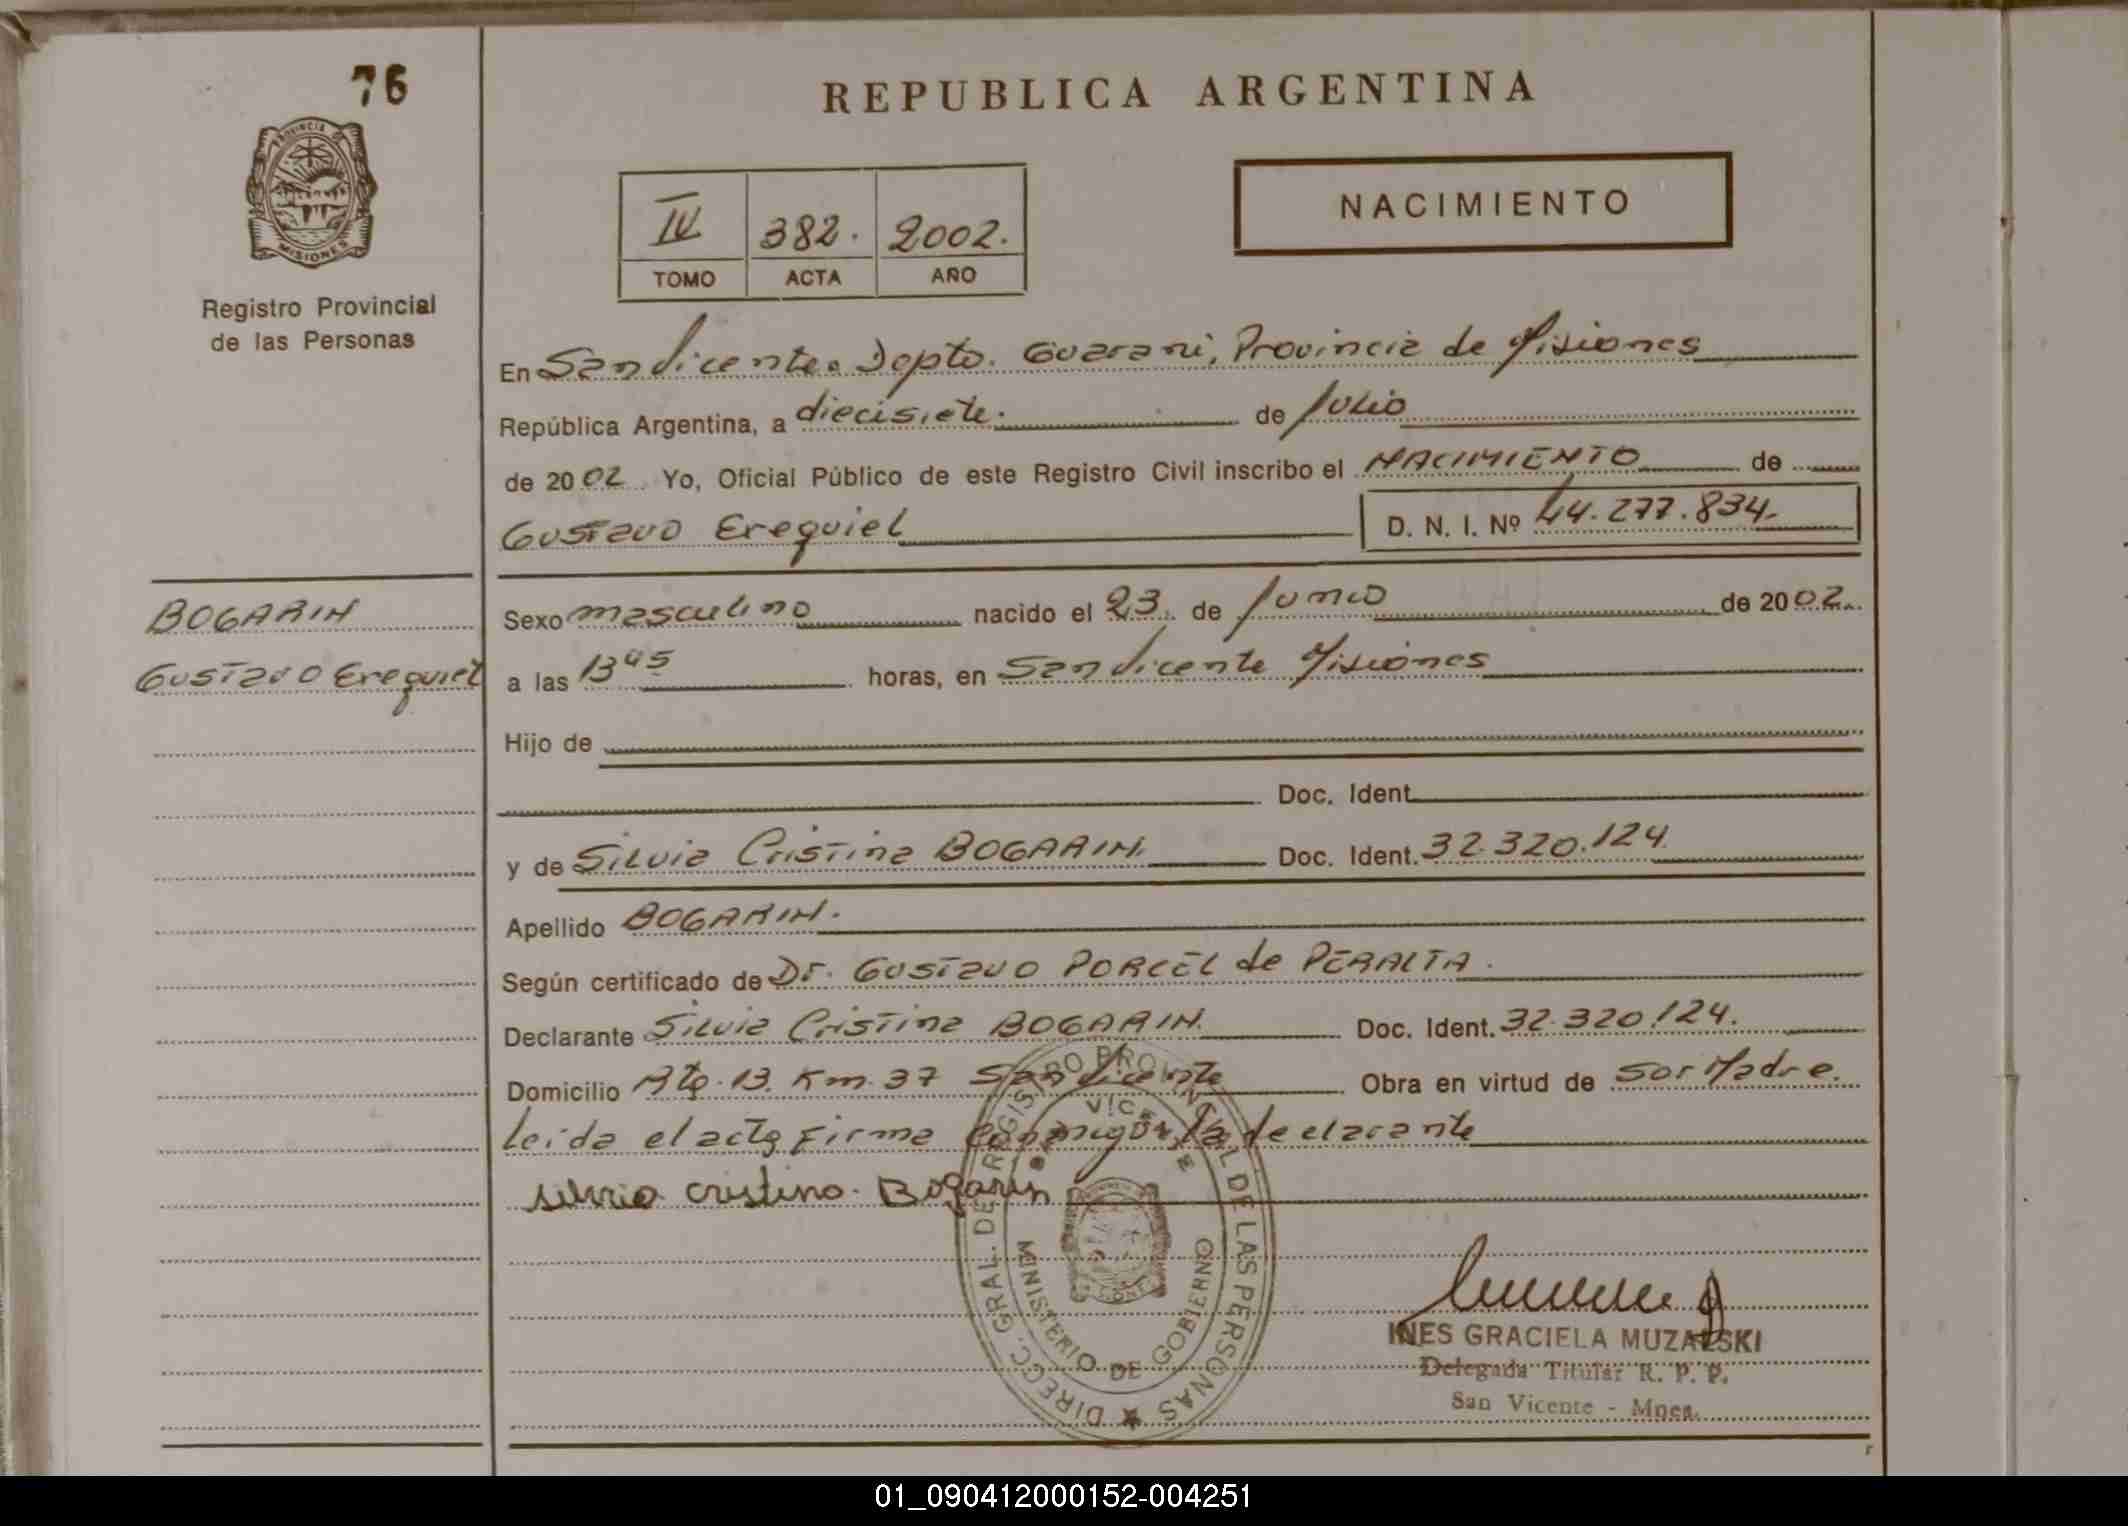 76
REPUBLICA ARGENTINA
PROVINCIA DE
MISIONES
Registro Provincial
de las Personas
IV 382. 2002.
TOMO ACTA AÑO
NACIMIENTO
En San Vicente. Depto. Guarani, Provincia de Misiones
República Argentina, a diecisiete. de Julio
de 2002 Yo, Oficial Público de este Registro Civil inscribo el NACIMIENTO de
Gustavo Ezequiel D. N. I. Nº 44.277.834.
BOGARIN
Gustavo Ezequiel
Sexo masculino nacido el 23 de Junio de 2002.
a las 13 45 horas, en San Vicente Misiones
Hijo de
Doc. Ident.
y de Silvia Cristina BOGARIN. Doc. Ident. 32.320.124.
Apellido BOGARIN.
Según certificado de Dr. Gustavo PORCEL de PERALTA.
Declarante Silvia Cristina BOGARIN. Doc. Ident. 32.320.124.
Domicilio Rta. 13. Km. 37 San Vicente Obra en virtud de ser Madre.
leida el acta firma conmigo la declarante
silvia cristina. Bogarin
DIRECC. GRAL. DE REGISTRO PROVINCIAL DE LAS PERSONAS
VICENTE
MINISTERIO DE GOBIERNO
INES GRACIELA MUZALSKI
Delegada Titular R. P. P.
San Vicente - Mnes.
01_090412000152-004251